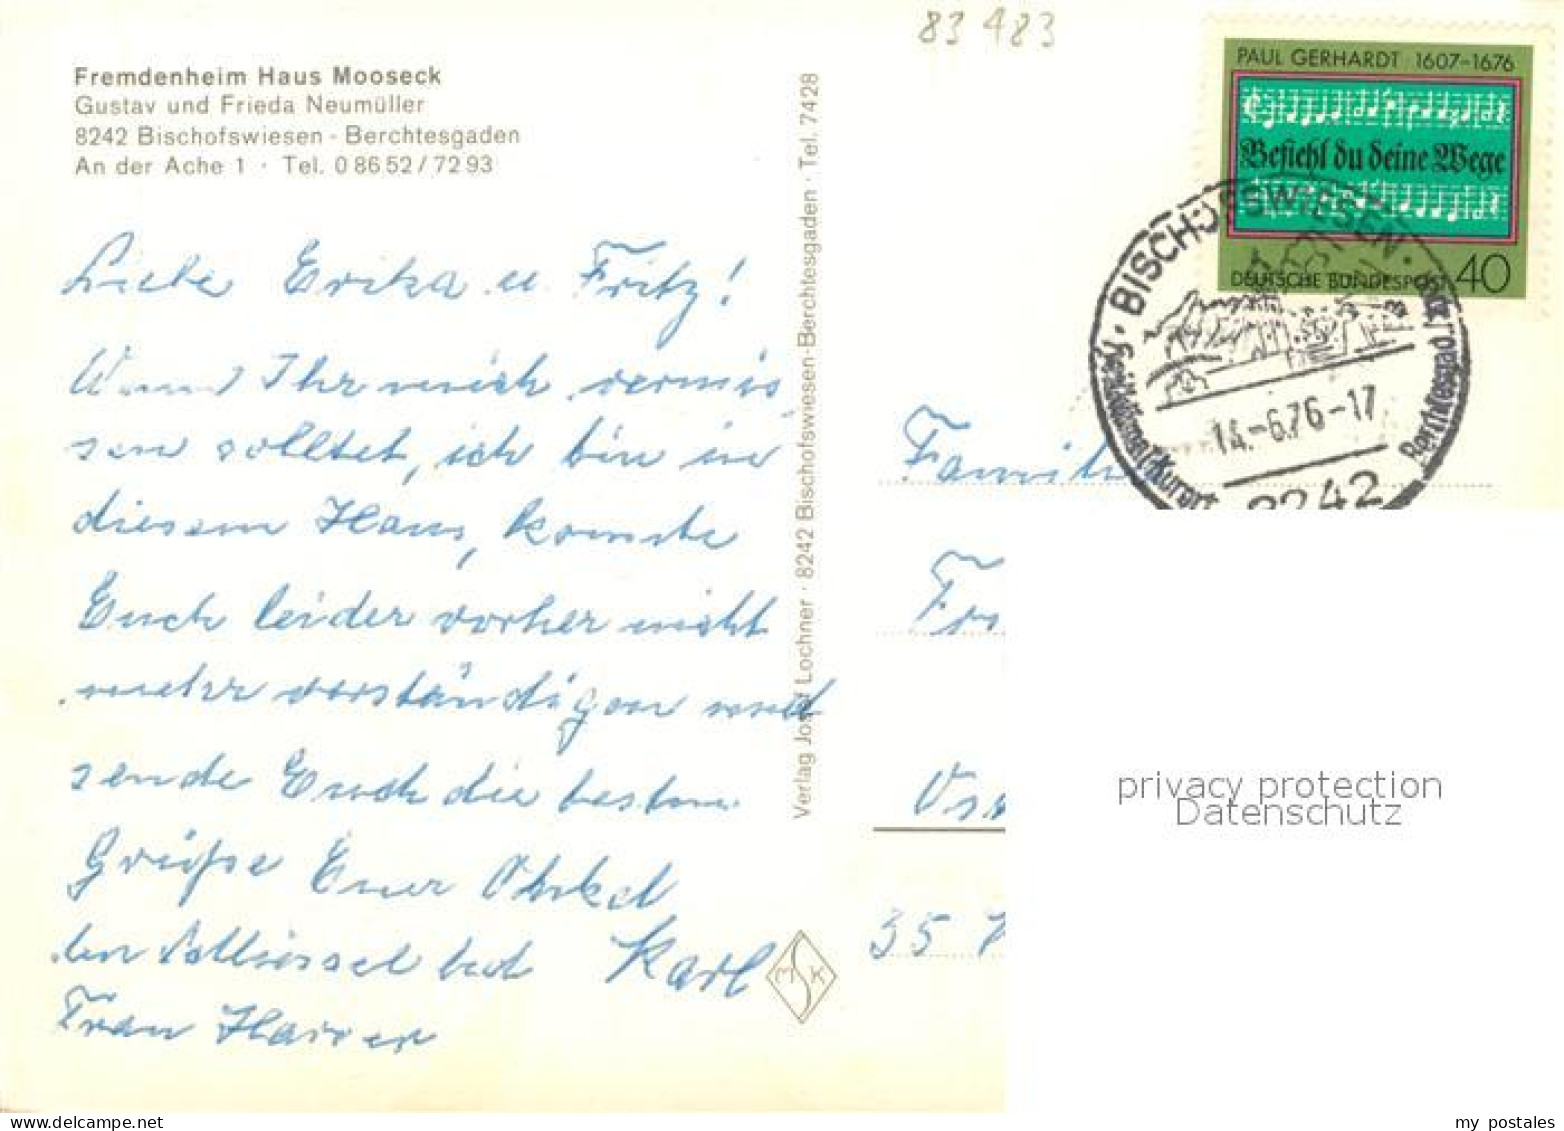 83 483
Fremdenheim Haus Mooseck
Gustav und Frieda Neumüller
8242 Bischofswiesen - Berchtesgaden
An der Ache 1 · Tel. 0 86 52 / 72 93
Liebe Erika u. Fritz!
Wenn Ihr mich vermis
sen solltet, ich bin in
diesem Haus, konnte
Euch leider vorher nicht
mehr verständigen und
sende Euch die besten
Grüße Euer Ohnkel
Karl
den Schlüssel hat
Frau Harrer
Verlag Josef Lochner · 8242 Bischofswiesen-Berchtesgaden · Tel. 7428
MSK
PAUL GERHARDT 1607-1676
Befiehl du deine Wege
DEUTSCHE BUNDESPOST 40
· BISCHOFSWIESEN ·
Heilklimat. Kurort
14.-6.76-17
8242
Famili
35
privacy protection
Datenschutz
my postales